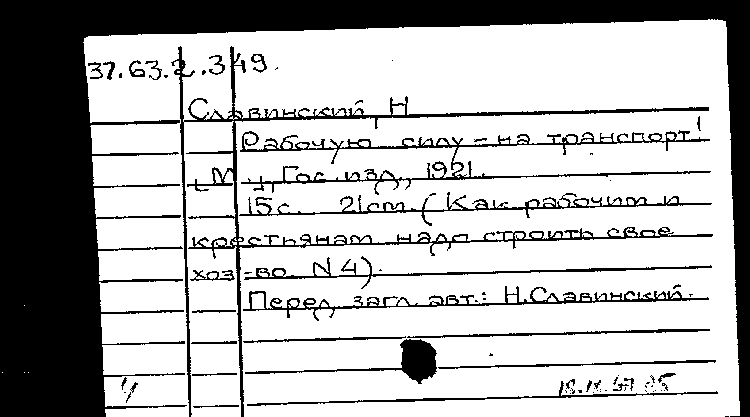 37.63.2.349.
Славинский, Н
Рабочую силу = на транспорт!
[М.], Гос. изд., 1921.
15 с. 21 cm. (Как рабочим и
крестьянам надо строить свое
хоз=во. N 4).
Перед загл. авт.: Н. Славинский.